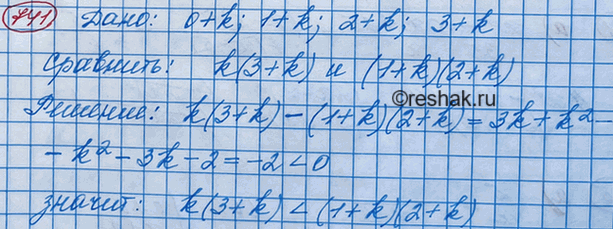 741 Дано: 0+k; 1+k; 2+k; 3+k
Сравнить: k(3+k) и (1+k)(2+k)
©reshak.ru
Решение: k(3+k)-(1+k)(2+k)=3k+k²-
-k²-3k-2=-2<0
значит: k(3+k)<(1+k)(2+k)